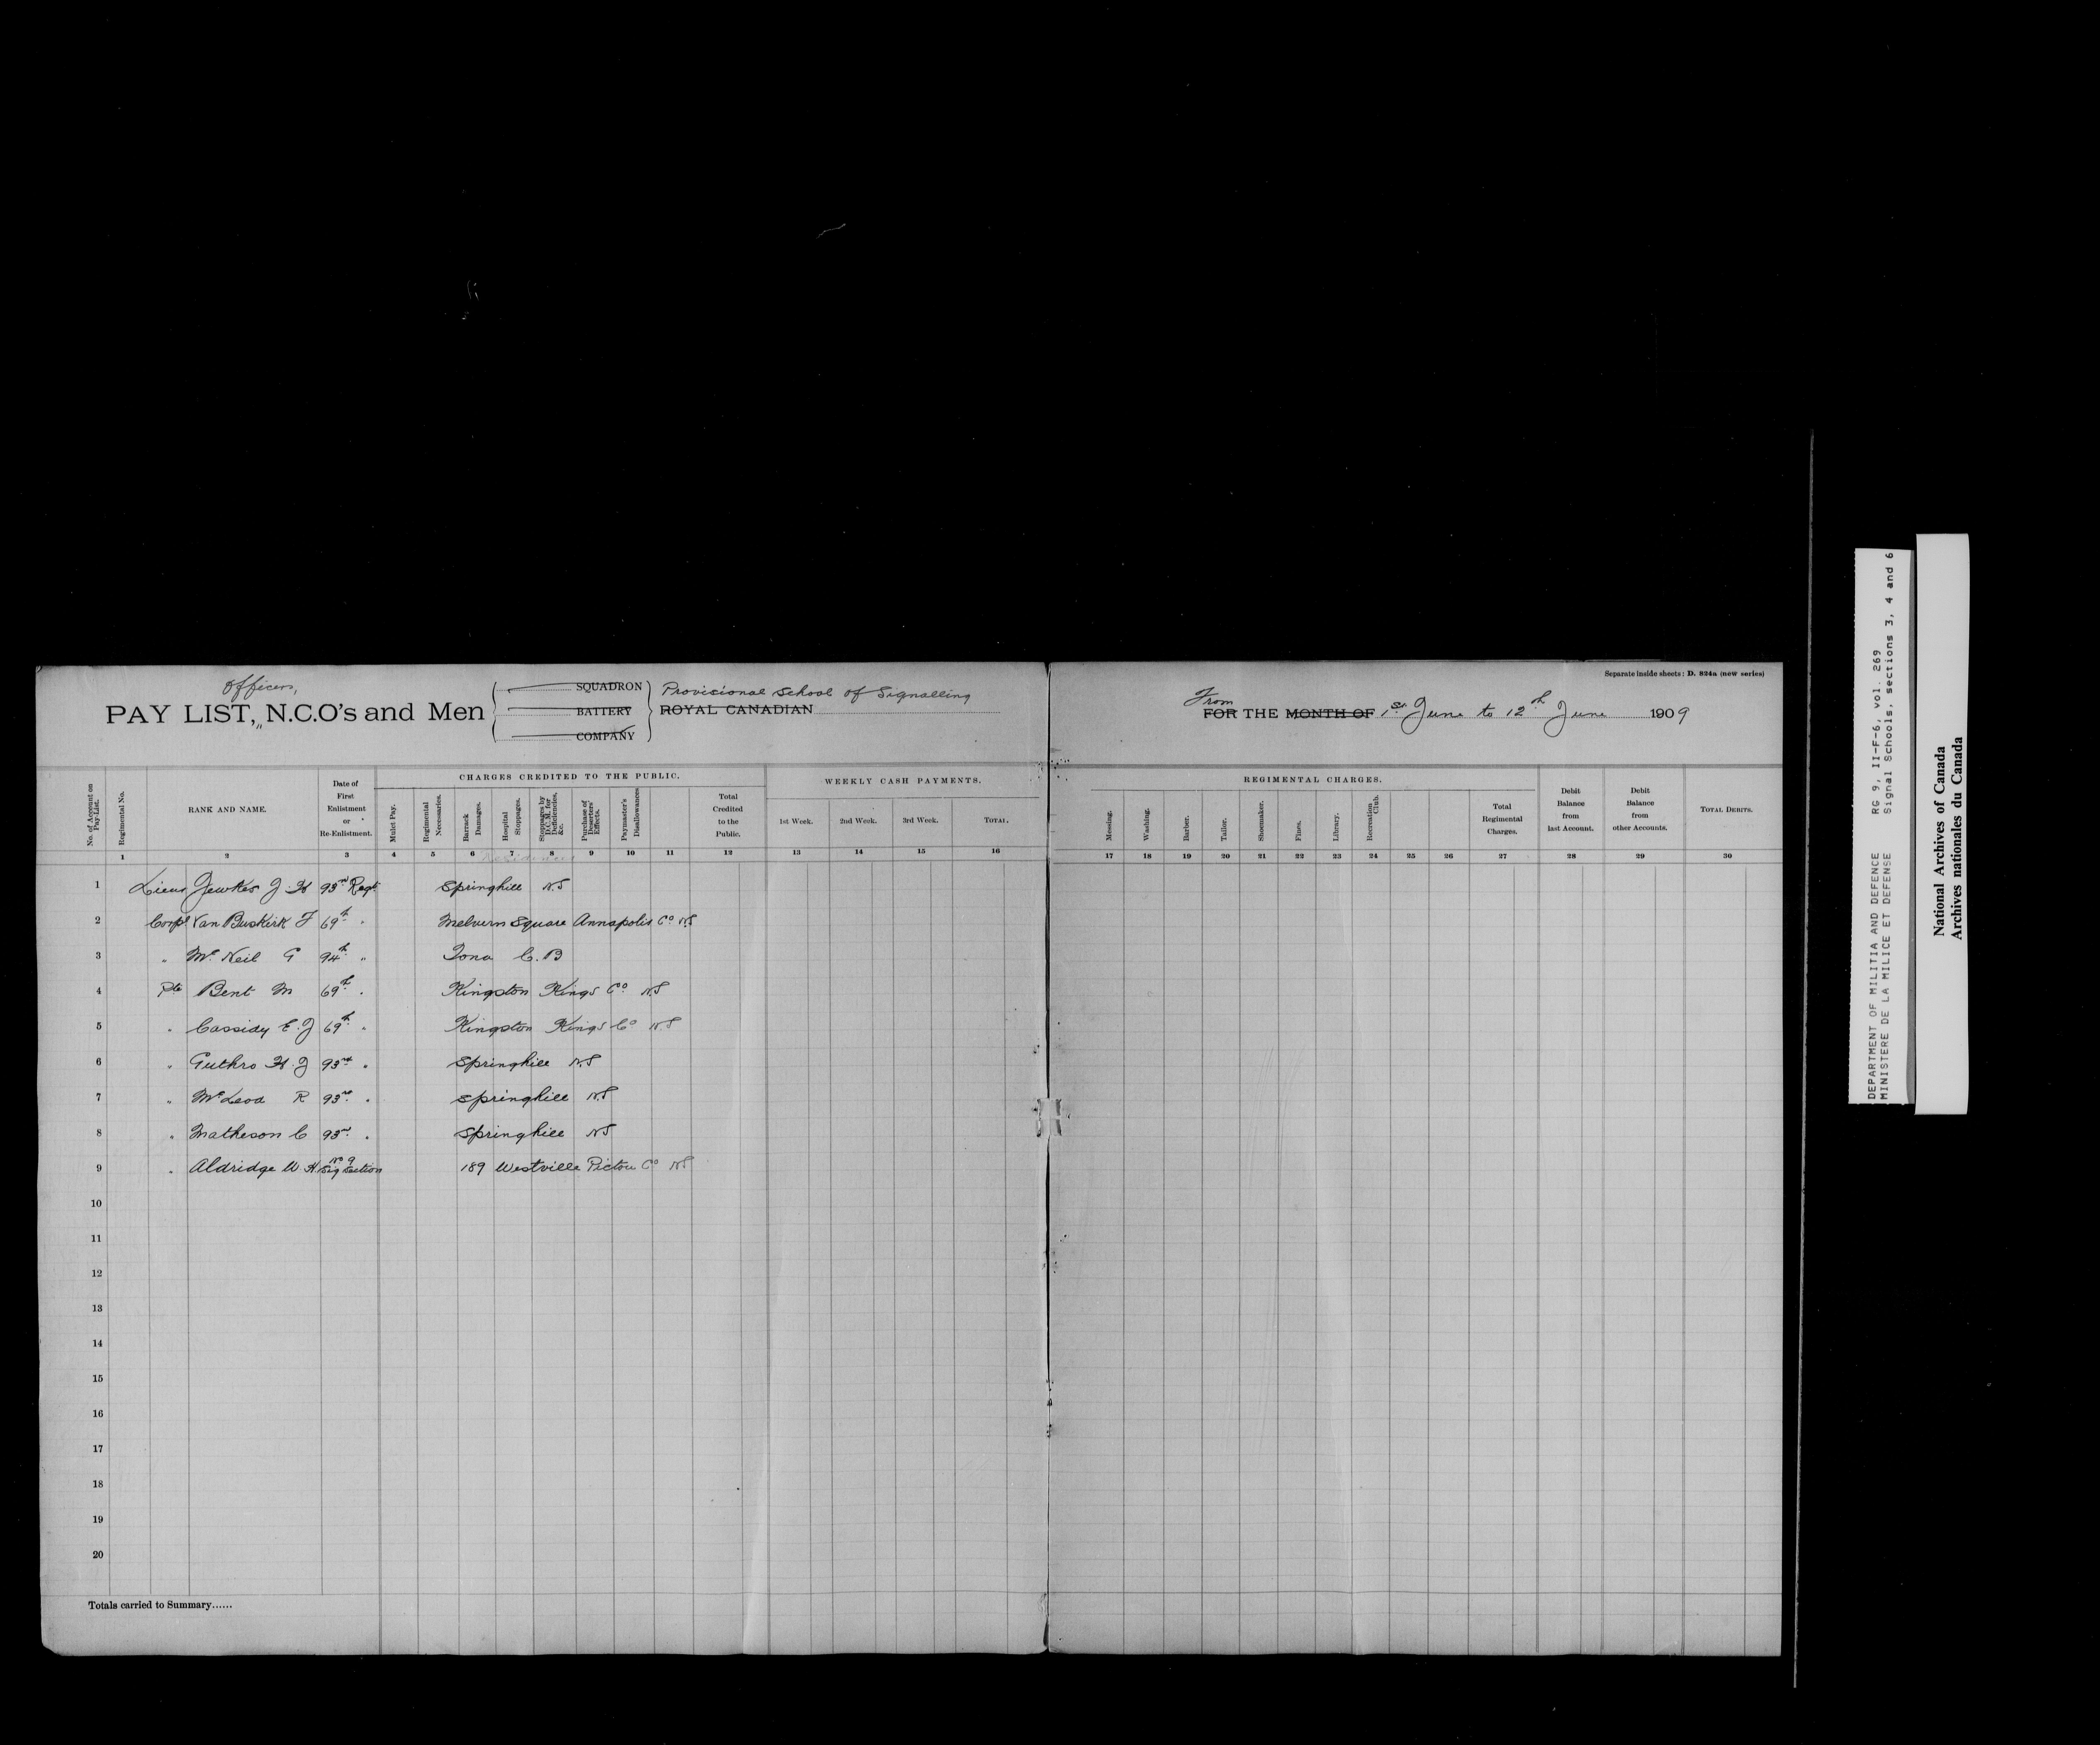 Separate inside sheets: D. 824a (new series)
Officers,
PAY LIST, „ N.C.O's and Men
SQUADRON
BATTERY
COMPANY
Provisional School of Signalling
ROYAL CANADIAN
From
FOR THE MONTH OF 1st June to 12th June 1909
CHARGES CREDITED TO THE PUBLIC.
WEEKLY CASH PAYMENTS.
REGIMENTAL CHARGES.
No. of Account on Pay-List.
Regimental No.
RANK AND NAME.
Date of First Enlistment or Re-Enlistment.
Mulct Pay.
Regimental Necessaries.
Barrack Damages.
Hospital Stoppages.
Stoppages by D.C.M. for Deficiencies, &c.
Purchase of Deserters' Effects.
Paymaster's Disallowances
Total Credited to the Public.
1st Week.
2nd Week.
3rd Week.
TOTAL.
Messing.
Washing.
Barber.
Tailor.
Shoemaker.
Fines.
Library.
Recreation Club.
Total Regimental Charges.
Debit Balance from last Account.
Debit Balance from other Accounts.
TOTAL DEBITS.
1 2 3 4 5 6 7 8 9 10 11 12 13 14 15 16 17 18 19 20 21 22 23 24 25 26 27 28 29 30
Residence
1 Lieut Jewkes J. H 93rd Regt Springhill N.S
2 Corpl Van Buskirk F 69th " Melvern Square Annapolis Co N.S
3 " Mc Neil G 94th " Iona C. B
4 Pte Bent M 69th " Kingston Kings Co N.S
5 " Cassidy E. J 69th " Kingston Kings Co N.S
6 " Guthro H. J 93rd " Springhill N.S
7 " McLeod R 93rd " Springhill N.S
8 " Matheson C 93rd " Springhill NS
9 " Aldridge W H No 9 Sig Section 189 Westville Pictou Co NS
10
11
12
13
14
15
16
17
18
19
20
Totals carried to Summary......
DEPARTMENT OF MILITIA AND DEFENCE RG 9, II-F-6, vol. 269
MINISTERE DE LA MILICE ET DEFENSE Signal Schools, sections 3, 4 and 6
National Archives of Canada
Archives nationales du Canada